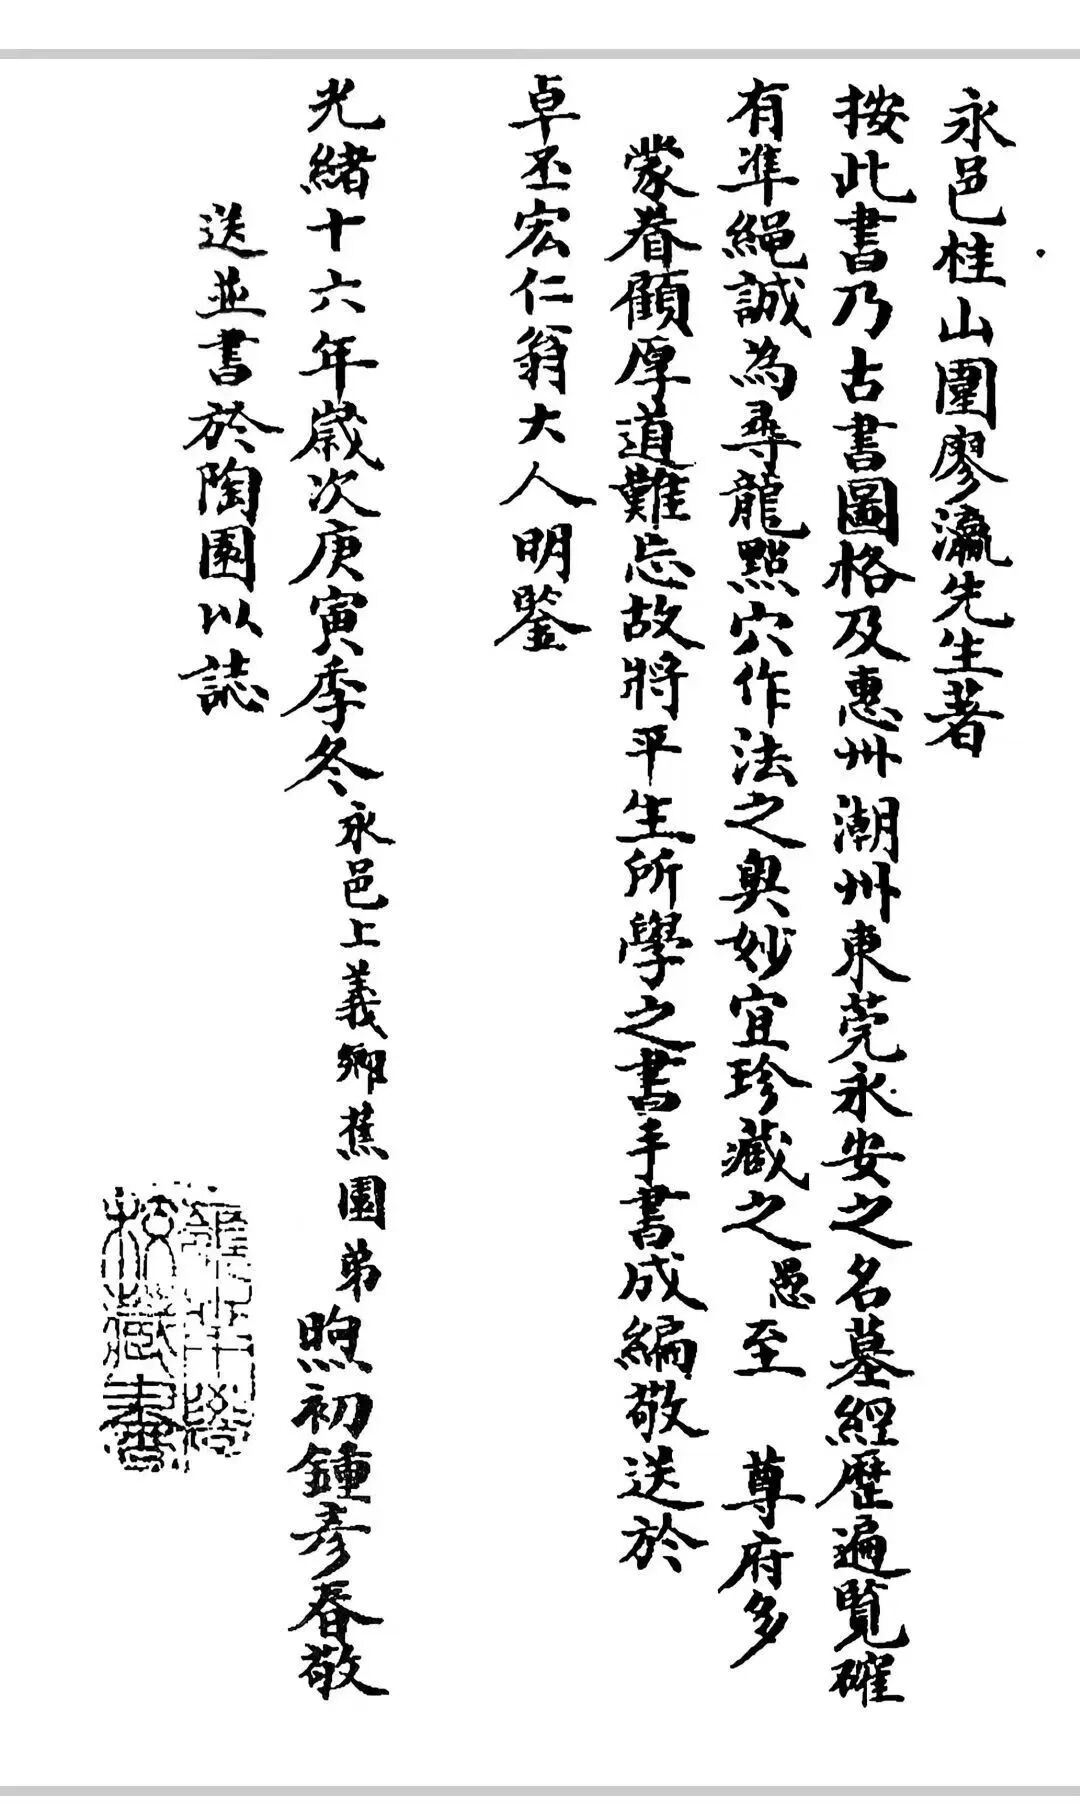 永邑桂山圍廖瀛先生著
按此書乃古書圖格及惠州潮州東莞永安之名墓經歷遍覽確
有準繩誠為尋龍點穴作法之奧妙宜珍藏之愚至 尊府多
蒙眷顧厚道難忘故將平生所學之書手書成編敬送於
卓丕宏仁翁大人明鑒
光緒十六年歲次庚寅季冬永邑上義鄉蕉園弟煦初鍾彥春敬
送並書於陶園以誌
藏書